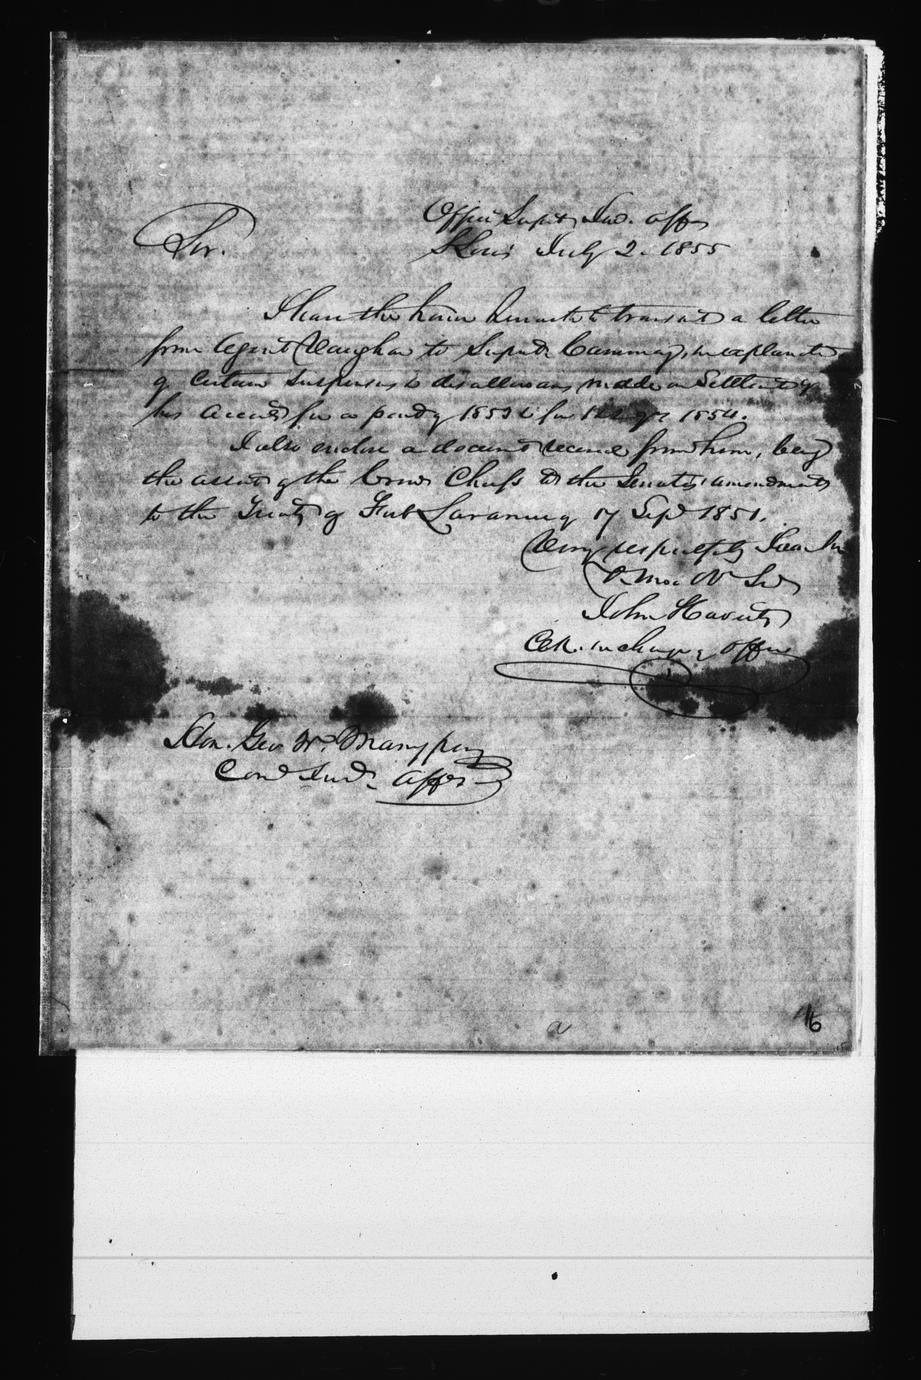 Office Supt. Ind. Affs
St Louis July 2. 1855
Sir.
I have the honor herewith to transmit a letter
from Agent Vaughan to Supdt. Cumming, in explanation
of certain suspensions & disallowances made on Settlement of
his accounts for a part of 1853 & for 1854.
I also enclose a document received from him, being
the assent of the Crow Chiefs to the Senates amendments
to the Treaty of Fort Laramie of 17 Sept 1851.
Very respectfully Dear Sir
Yr. Mo. Ob Svt
John Haverty
Clk. in charge of Office
Hon. Geo W. Manypenny
Com Ind. Affs
16